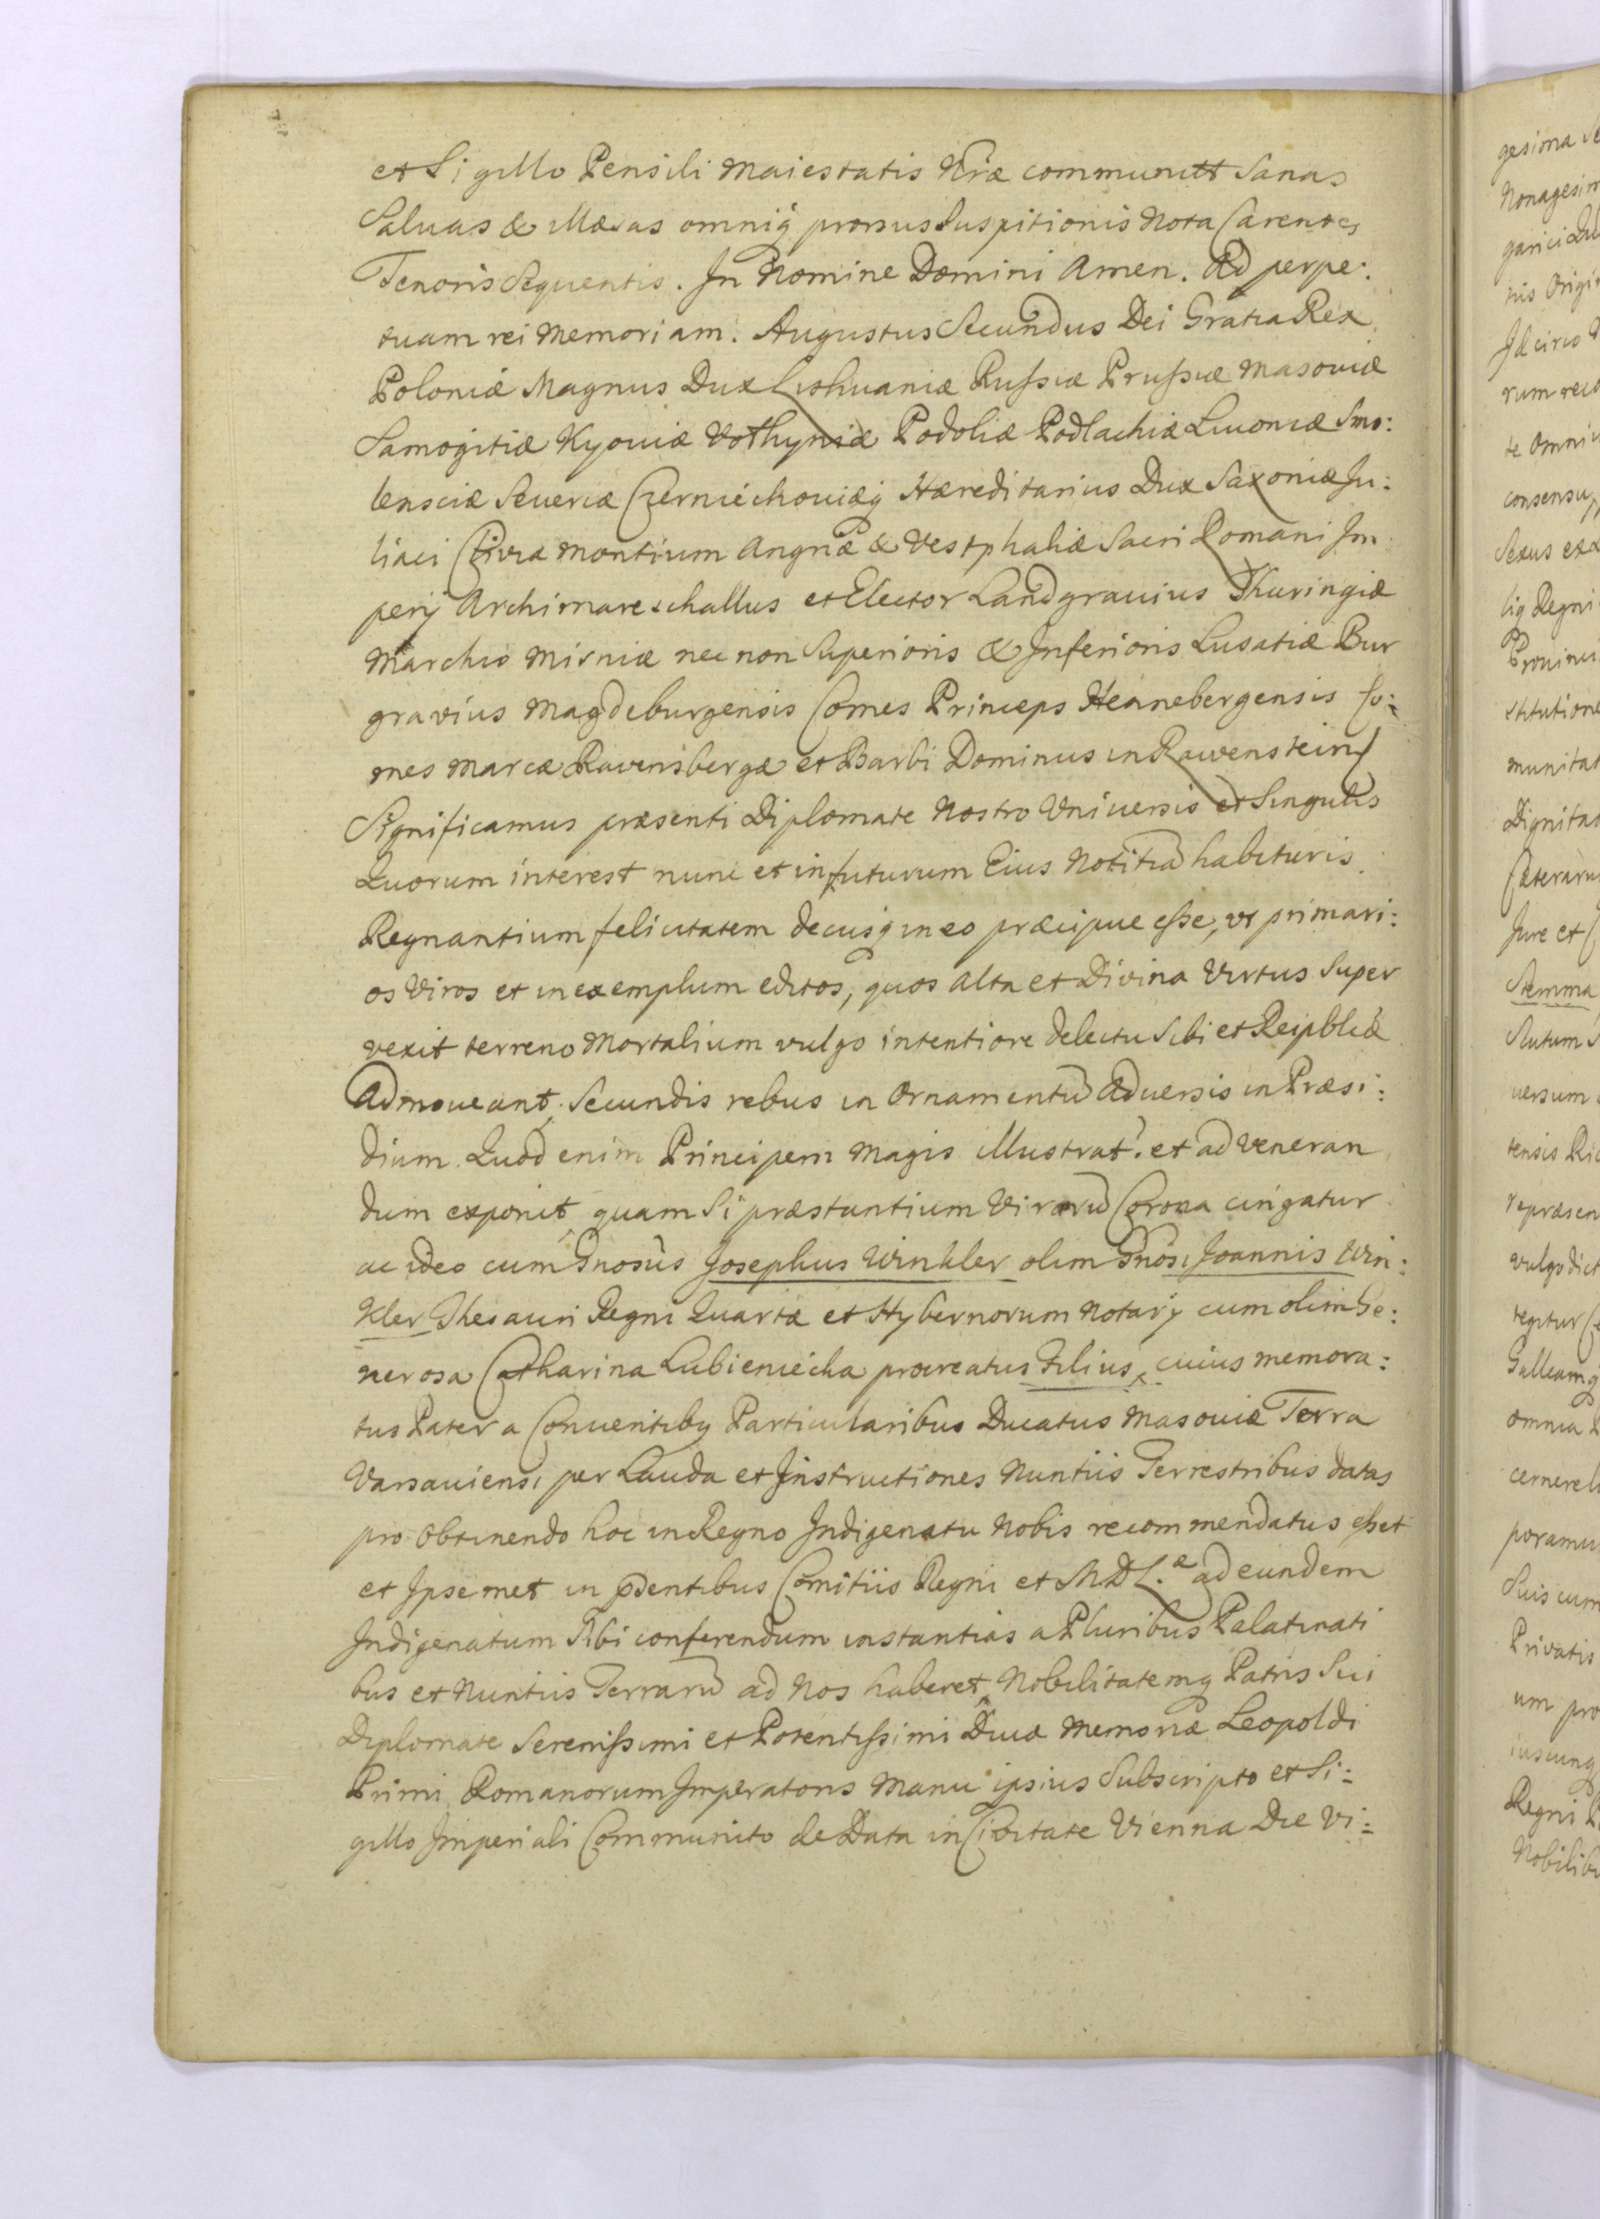 et Sigillo Pensili Maiestatis Nræ communitt Sanas
Saluas & illæsas omniq prorsus Suspitionis Nota Carentes
Tenoris Sequentis. In Nomine Domini Amen. Ad perpe:
tuam rei Memoriam. Augustus Secundus Dei Gratia Rex
Poloniæ Magnus Dux Lithuaniæ Russiæ Prussiæ Masoviæ
Samogitiæ Kyoviæ Volhyniæ Podoliæ Podlachiæ Livoniæ Smo:
lensciæ Severiæ Czerniechoviæq Hæreditarius Dux Saxoniæ Ju:
liaci Cliviæ Montium Angriæ & Vestphaliæ Sacri Romani Im
perij Archimareschallus et Elector Landgravius Thuringiæ
Marchio Misniæ nec non Superioris & Inferioris Lusatiæ Bur
gravius Magdeburgensis Comes Princeps Hennebergensis Co:
mes Marcæ Ravensbergæ et Barbi Dominus in Rawenstein
Significamus præsenti Diplomate Nostro Universis et Singulis
Quorum interest nunc et in futurum Eius Notitiã habituris
Regnantium felicitatem decusq in eo præcipue esse, vt primari:
os Viros et in exemplum editos, quos alta et Divina Virtus Super
vexit terreno Mortalium vulgo intentiore delectu Sibi et Reipblicæ
Admoveant, Secundis rebus in Ornamentũ Adversis in Præsi:
dium. Quod enim Principem magis illustrat? et ad veneran
dum exponit, quam Si præstantium Virorũ Corona cingatur
ac ideo cum Gnosus Josephus Winkler olim Gnosi Joannis Win:
kler Thesauri Regni Quartæ et Hybernorum Notarij cum olim Ge:
nerosa Catharina Lubieniecka procreatus Filius, cuius memora:
tus Pater a Conventibq Particularibus Ducatus Masoviæ Terra
Varsaviensi per Lauda et Instructiones Nuntiis Terrestribus datas
pro obtinendo hoc in Regno Indigenatu Nobis recommendatus esset
et Ipsemet in pdentibus Comitiis Regni et M.D.L.æ ad eundem
Indigenatum Sibi conferendum instantias a Pluribus Palatinati
bus et Nuntiis Terrarũ ad Nos haberet, Nobilitatemq Patris Sui
Diplomate Serenissimi et Potentissimi Divæ Memoriæ Leopoldi
Primi Romanorum Imperatoris Manu ipsius Subscripto et Si:
gillo Imperiali Communito de Data in Civitate Vienna Die Vi: